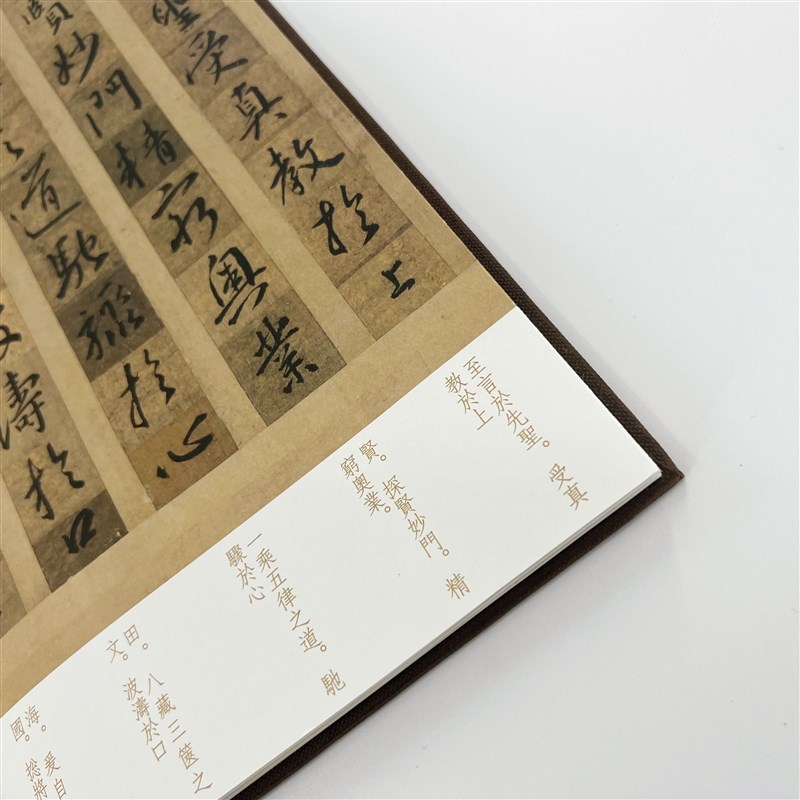 聖受真教於上
妙門精窮奧業
道馳驟於心
濤於口
至言於先聖。受真
教於上
賢。探賾妙門。精
窮奧業。
一乘五律之道。馳
驟於心
田。八藏三篋之
文。波濤於口
海。爰自
國。揔將